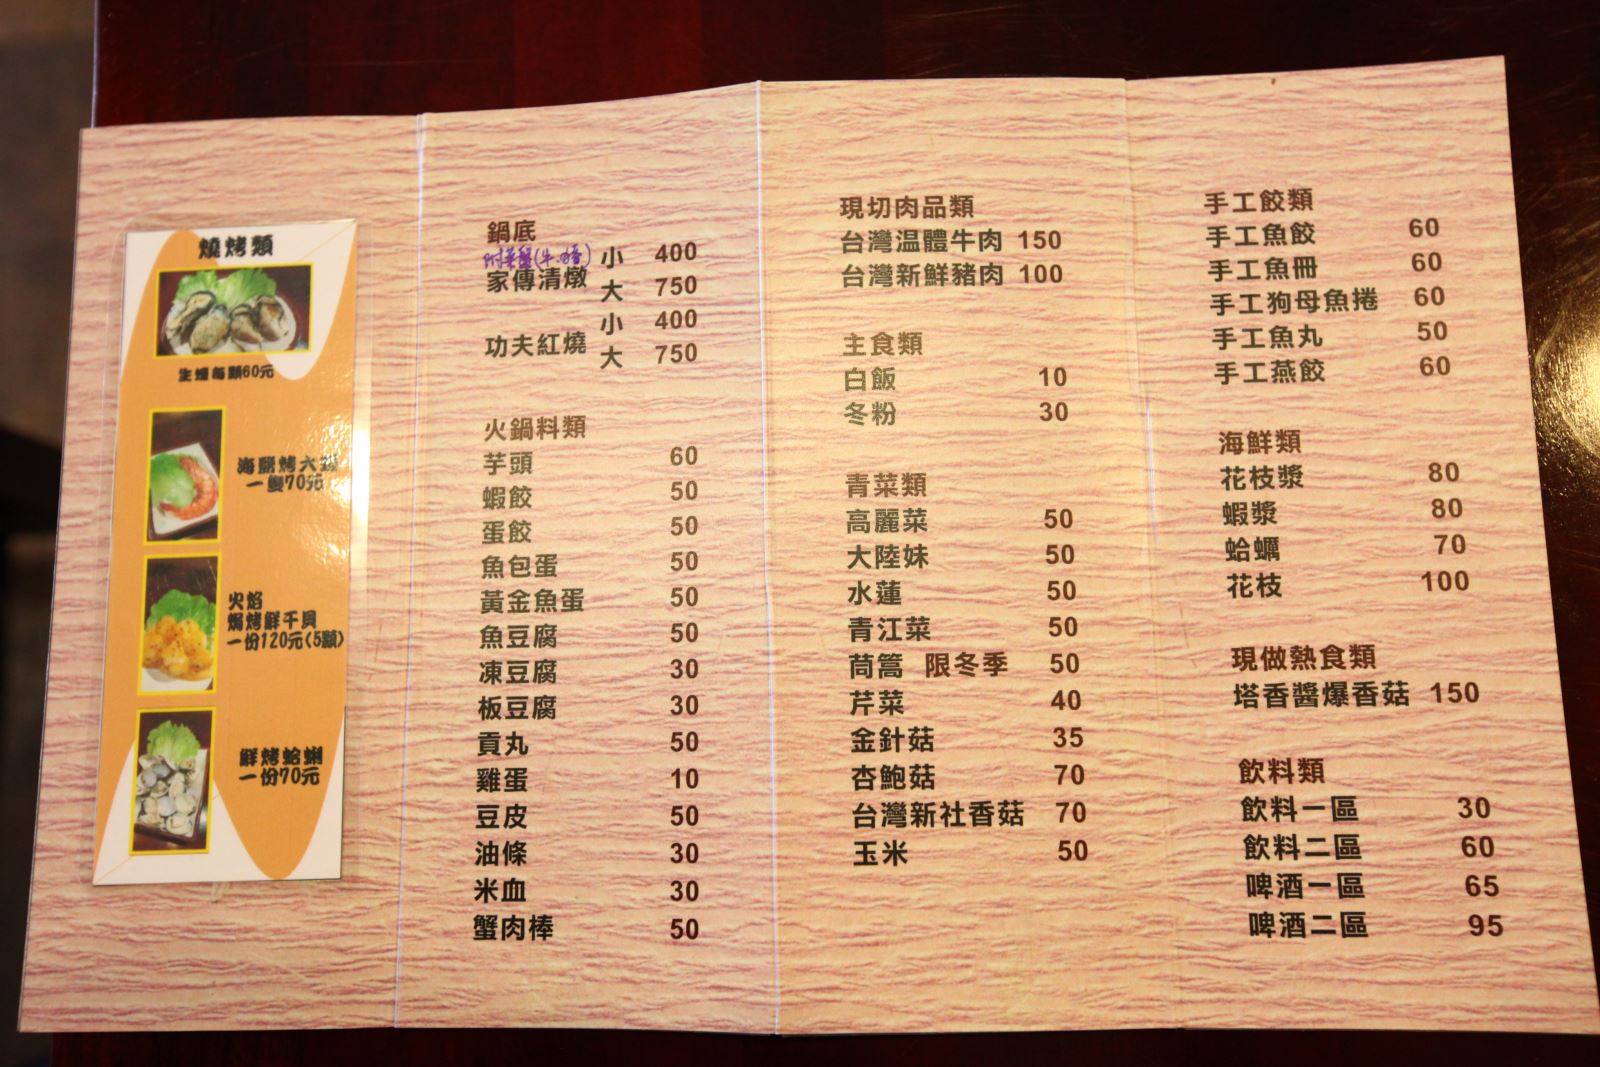 燒烤類
生蠔每顆60元
海鹽烤大蝦
一隻70元
火焰
焗烤鮮干貝
一份120元(5顆)
鮮烤蛤蜊
一份70元
鍋底
附菜盤(牛.豬)
家傳清燉 小 400
大 750
功夫紅燒 小 400
大 750
火鍋料類
芋頭 60
蝦餃 50
蛋餃 50
魚包蛋 50
黃金魚蛋 50
魚豆腐 50
凍豆腐 30
板豆腐 30
貢丸 50
雞蛋 10
豆皮 50
油條 30
米血 30
蟹肉棒 50
現切肉品類
台灣温體牛肉 150
台灣新鮮豬肉 100
主食類
白飯 10
冬粉 30
青菜類
高麗菜 50
大陸妹 50
水蓮 50
青江菜 50
茼蒿 限冬季 50
芹菜 40
金針菇 35
杏鮑菇 70
台灣新社香菇 70
玉米 50
手工餃類
手工魚餃 60
手工魚冊 60
手工狗母魚捲 60
手工魚丸 50
手工燕餃 60
海鮮類
花枝漿 80
蝦漿 80
蛤蠣 70
花枝 100
現做熱食類
塔香醬爆香菇 150
飲料類
飲料一區 30
飲料二區 60
啤酒一區 65
啤酒二區 95